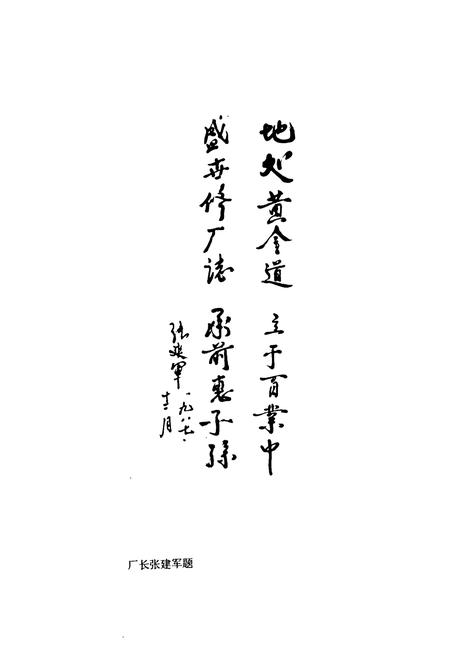 地处黄金道 立于百业中
盛世修厂誌 承前惠子孫
张建軍
一九八七、
十二月
厂长张建军题